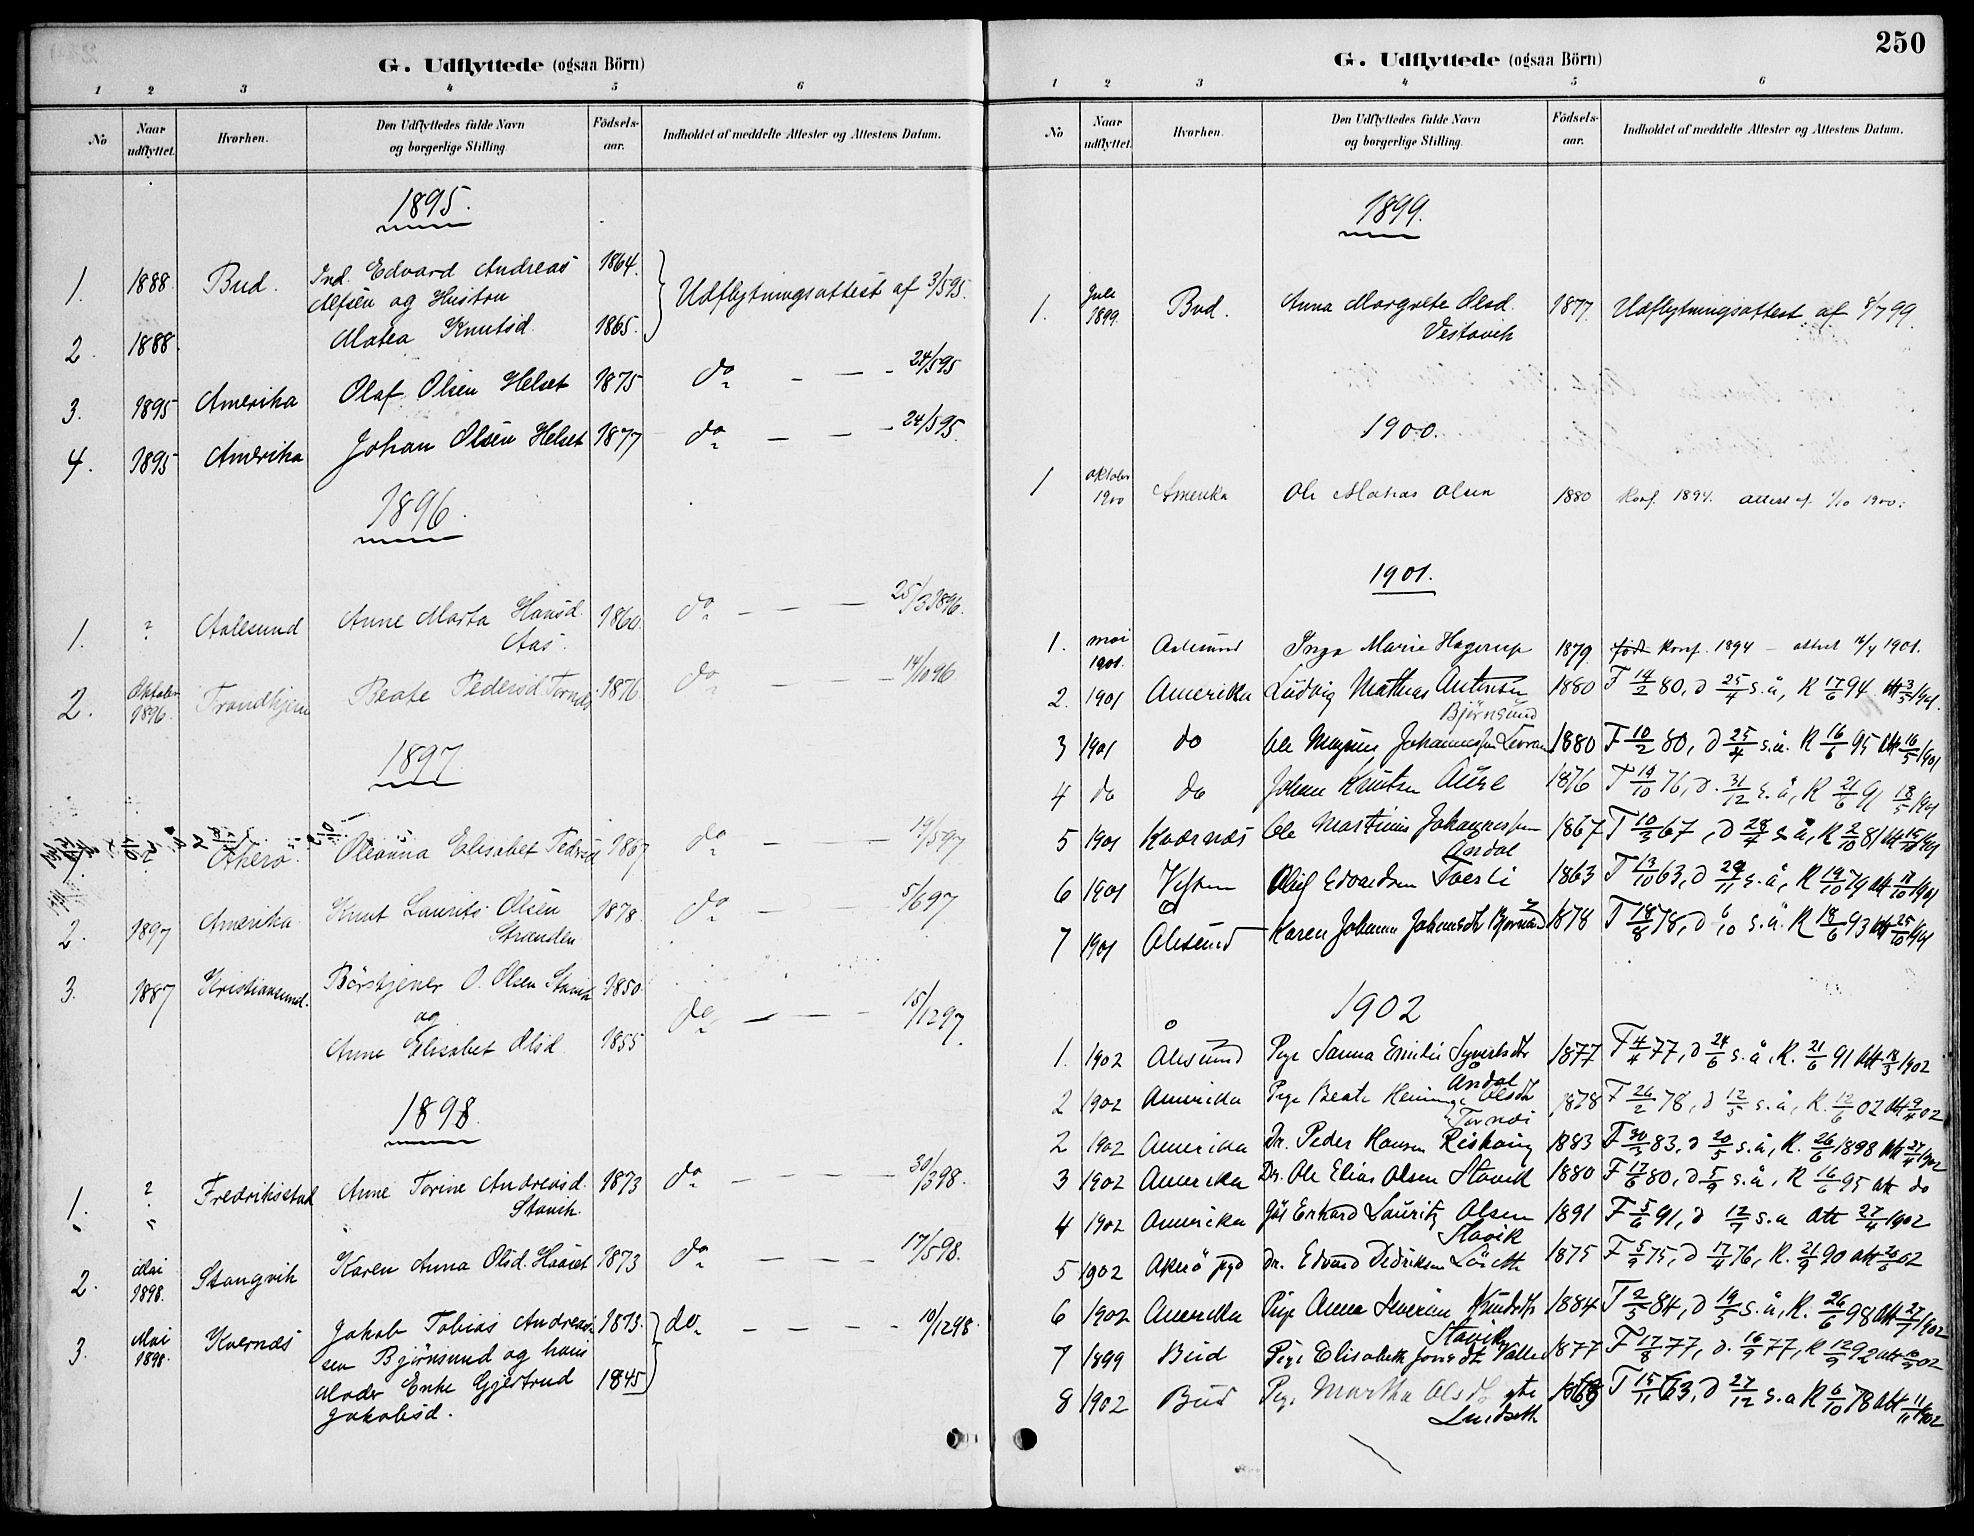 G. Udflyttede (ogsaa Börn)
1 2 3 4 5 6
No Naar udflyttet. Hvorhen. Den Udflyttedes fulde Navn og borgerlige Stilling. Födsels-aar. Indholdet af meddelte Attester og Attestens Datum.
1895.
1. 1888. Bud. Ind. Edvard Andreas 1864.
Alfsen og Hustru Udflytningsattest af 3/5 95.
2. 1888. Matea Knutsd. 1865.
3. 1895 Amerika Olaf Olsen Helset 1875 do - - - 24/5 95
4. 1895 Amerika Johan Olsen Helset 1877 do - - - 24/5 95.
1896.
1. ? Aalesund Anne Marta Hansd. 1860. do - - - 25/3 1896.
Aas.
2. Oktober 1896. Trondhjem Beate Pedersd. Tornes 1876 do - - - 14/10 96
1897.
Akerø. Oleanna Elisabet Pedersd 1867 do - - - 19/5 97
2. 1897 Amerika Knut Laurits Olsen 1878. do - - - 5/6 97
Stranden
3. 1887 Kristiansund. Børstjener O. Olsen Stavik 1850
og do - - - 15/12 97.
Anne Elisabet Olsd. 1855
1898.
1. ? Fredriksstad Anne Torine Andreasd. 1873 do - - - 30/3 98.
Stavik.
2. Mai 1898. Stangvik Karen Anna Olsd. Haaset 1873 do - - - 17/5 98.
3. Mai 1898. Kvernes Jakob Tobias Andreas- 1873. do - - - 10/12 98.
sen Bjørnsund og hans
Moder Enke Gjertrud 1845
Jakobsd.
250
G. Udflyttede (ogsaa Börn)
1 2 3 4 5 6
No Naar udflyttet. Hvorhen. Den Udflyttedes fulde Navn og borgerlige Stilling. Födsels-aar. Indholdet af meddelte Attester og Attestens Datum.
1899.
1. Juli 1899. Bud. Anna Margrete Olsd. 1877. Udflytningsattest af 8/7 99.
Vestavik
1900.
1 oktober 1900 Amerika Ole Mathias Olsen 1880 Konf. 1894. attest af 1/10 1900.
1901.
1. mai 1901. Aalesund Inga Marie Hagerup 1879. Konf. 1894 - attest 16/4 1901.
2. 1901 Amerika Ludvig Mathias Antonsen 1880 F 14/2 80, d 25/4 s.å, K 17/6 94 Att 3/5 1901.
Bjørnsund
3 1901 do Ole Magnus Johannessen 1880 F 10/2 80, d 25/4 s.å. K 16/6 95 Att 16/5 1901
4 do do Johan Knutsen Aure 1876 F 19/10 76, d. 31/12 s.å, K 21/6 91 18/5 1901
5 1901 Kvernæs Ole Martinius Johannessen 1867 F 10/3 67, d 28/4 s.å, K 2/10 81 Att 1901
Årdal
6 1901 Oluf Edvardsen 1863 F 13/10 63, d 29/11 s.å, K 19/10 79 Att 18/10 1901
7 1901 Ålesund Karen Johanna Johannsdtr Bjørnsund 1878 F 18/8 78, d 6/10 s.å. K 18/6 93 Att 25/10 1901
1902
1. 1902 Ålesund Pige Sanna Emilie Syvertsdtr 1877 F 4/4 77, d 24/6 s.å, K. 21/6 91 Att 18/3 1902
Årdal
2 1902 Amerika Pige Beate Olsdtr 1878 F 26/2 78, d 12/5 s.å, K. 12/6 02 Att 9/4 02
Tornes
2 1902 Amerika Dr. Peder Hansen 1883 F 30/3 83, d 20/5 s.å, K. 26/6 1898 Att 27/4 1902
3 1902 Amerika Dr. Ole Elias Olsen Stavik 1880 F 17/6 80, d 5/9 s.å, K 16/6 95 att do
4 1902 Amerika Erhard Lauritz Olsen 1891 F 5/6 91, d 12/7 s.a Att 27/4 1902
Stavik
5 1902 Akerö pgd Dr. Edvard Didriksen 1875 F 5/9 75, d 17/4 76, K. 21/9 90 att 20/6 02
6 1902 Amerika Pige Anna Severine Knudsdtr 1884 F 2/3 84, d 19/5 s.å, K. 26/6 98 Att 27/7 1902
Stavik
7 1899 Bud Pige Elisabeth Jonsdtr 1877 F 17/8 77, d. 16/9 77, K 12/9 92 att 02
8 1902 Bud Pige Martha Olsdtr F 15/11 63, d 27/12 s.a K 6/10 78 Att 11/11 1902